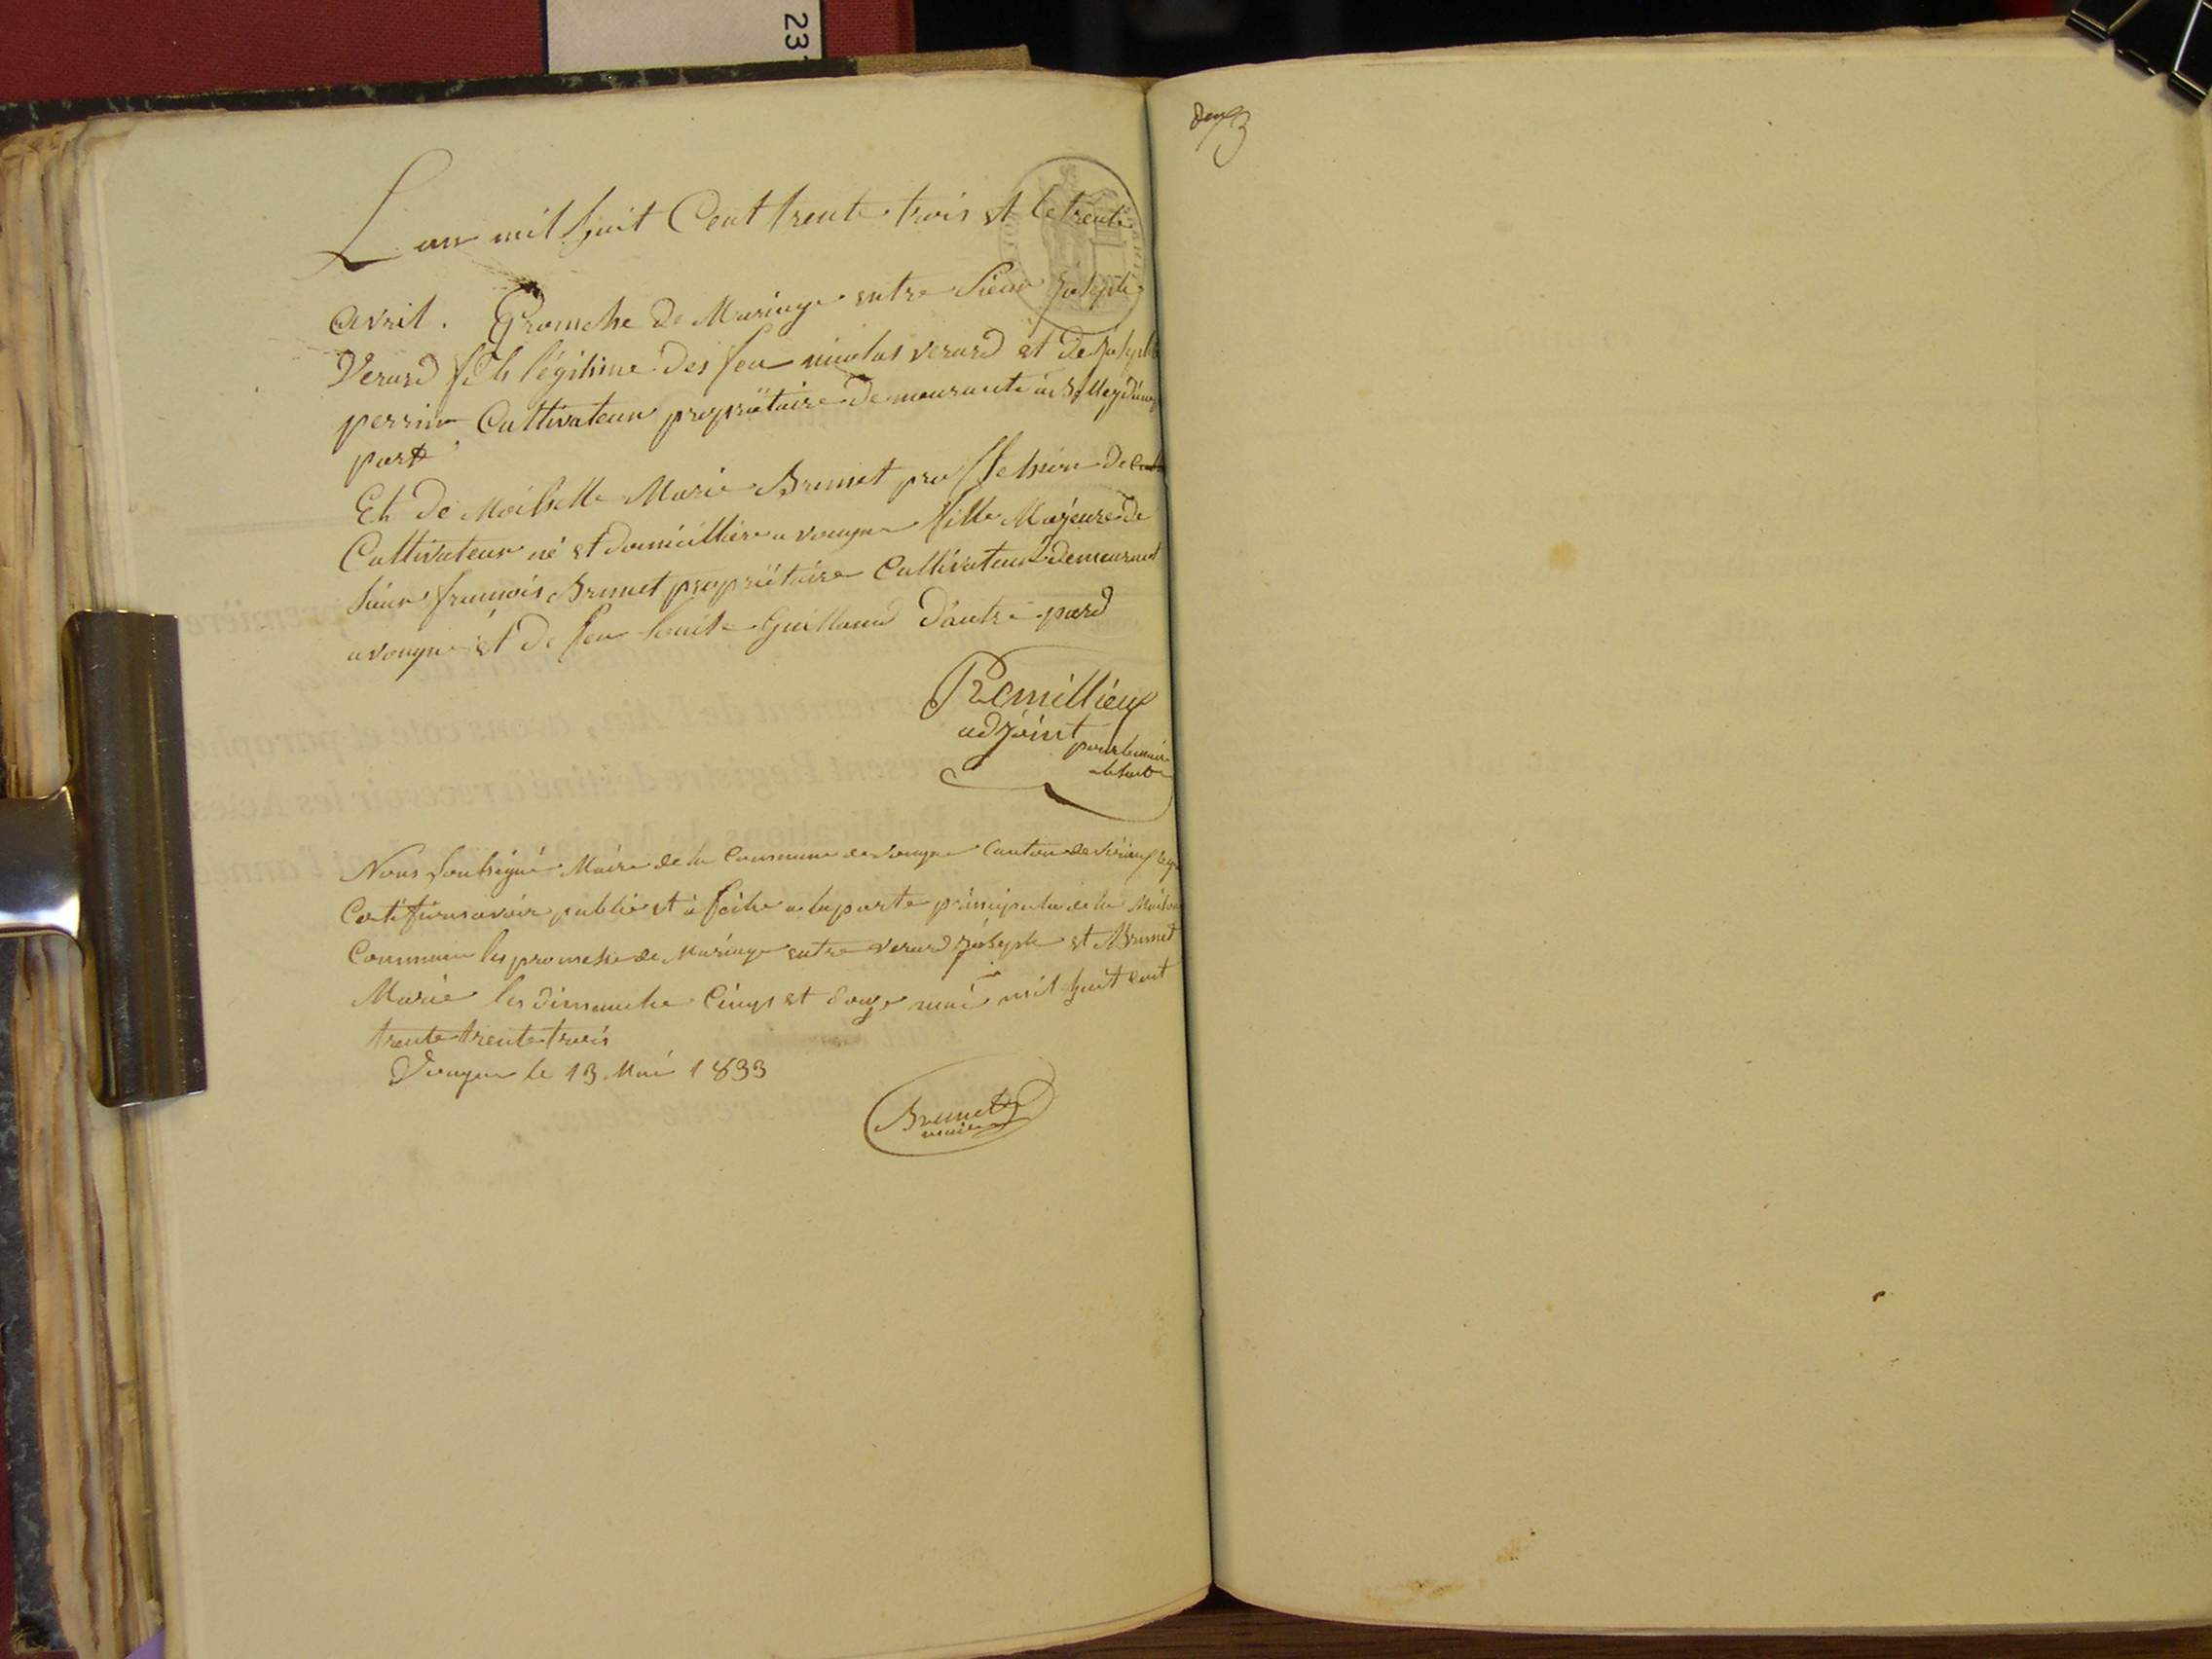 23
L'an mil huit Cent trente trois et le trente
avril. Promesse de Mariage entre Sieur Joseph
Verard fils légitime des feu nicolas verard et de Joseph
perrin Cultivateur propriétaire demeurante à d'une
part
Et de Moiselle Marie Brunet profession de
Cultivateur né et domicillier a vongne fille Majeure de
Sieur francois Brunet propriétaire Cultivateur demeurant
a vongne et de feu louise Guilland d'autre pard
Remillieux
adjoint
pour le maire
absent
Nous soussigné Maire de la Commune de vongne Canton de virieux le
Certifions avoir publié et à fiché a la porte principale de la Maison
Commune les promesse de Mariage entre verard Joseph et Brunet
Marie les dimanche Cinq et douze mai mil huit cent
trente trente trois
Vongne le 13 Mai 1833
Brunet
maire
deux